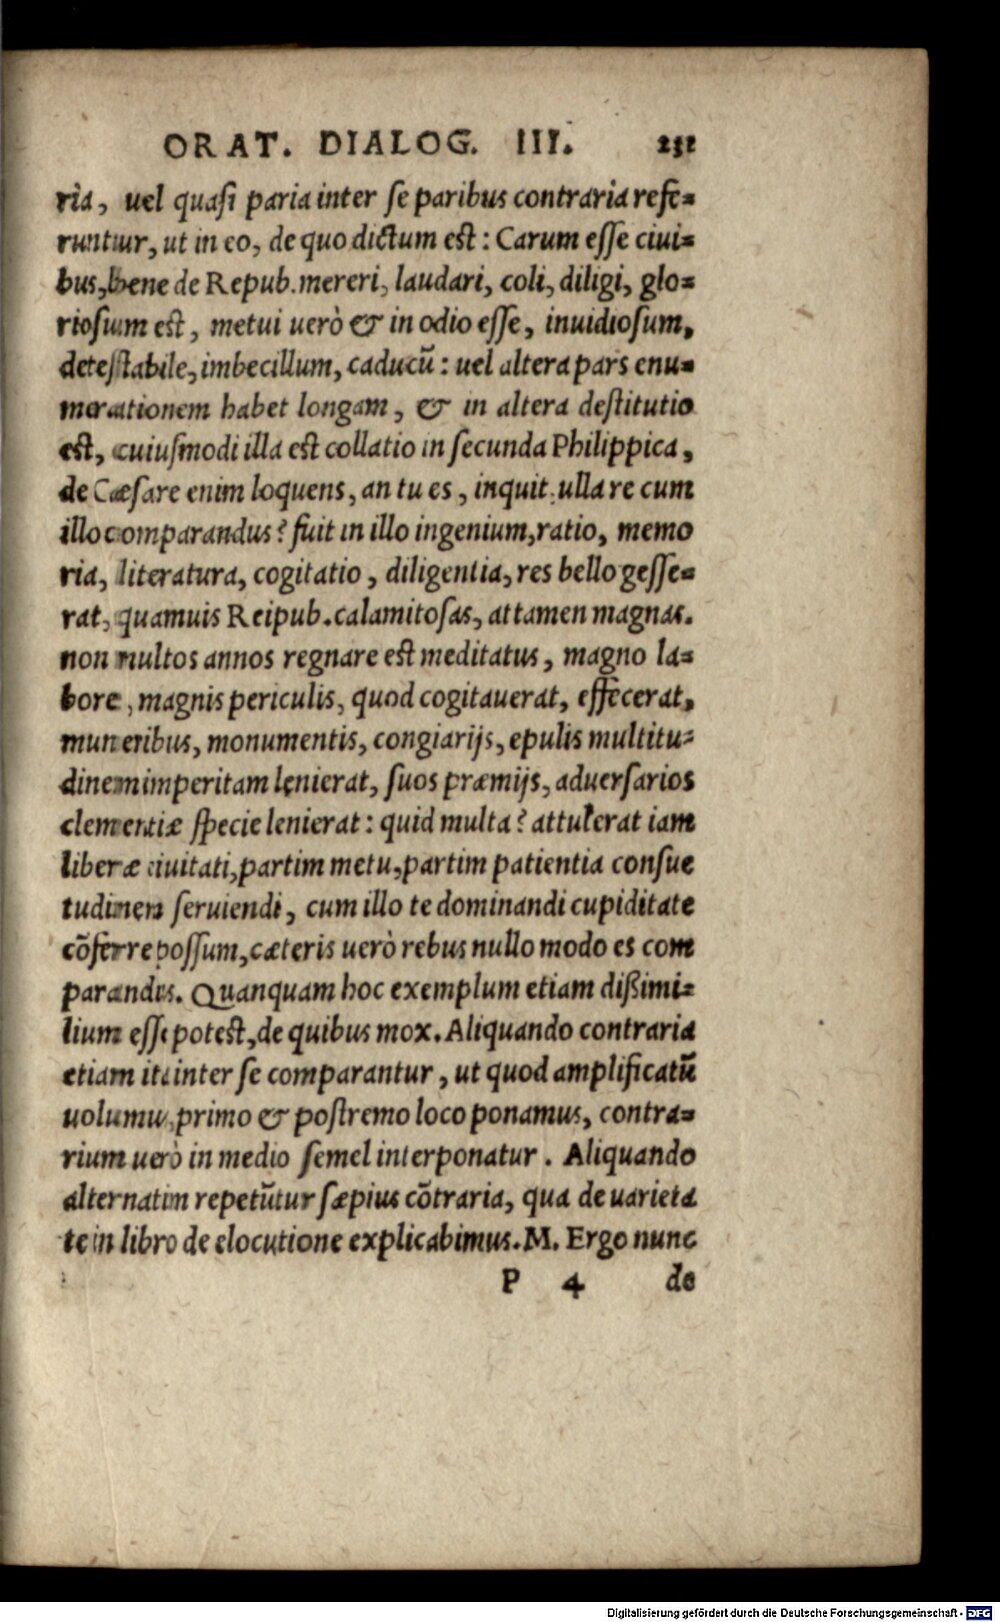 ORAT. DIALOG. III. 231
ria, uel quasi paria inter se paribus contraria refe=
runtur, ut in eo, de quo dictum est: Carum esse ciui=
bus, bene de Repub. mereri, laudari, coli, diligi, glo=
riosum est, metui uerò & in odio esse, inuidiosum,
detestabile, imbecillum, caducũ: uel altera pars enu=
merationem habet longam, & in altera destitutio
est, cuiusmodi illa est collatio in secunda Philippica,
de Cæsare enim loquens, an tu es, inquit, ulla re cum
illo comparandus? fuit in illo ingenium, ratio, memo
ria, literatura, cogitatio, diligentia, res bello gesse=
rat, quamuis Reipub. calamitosas, attamen magnas.
non multos annos regnare est meditatus, magno la=
bore, magnis periculis, quod cogitauerat, effecerat,
muneribus, monumentis, congiarijs, epulis multitu=
dinem imperitam lenierat, suos præmijs, aduersarios
clementiæ specie lenierat: quid multa? attulerat iam
liberæ ciuitati, partim metu, partim patientia consue
tudinem seruiendi, cum illo te dominandi cupiditate
cõferre possum, cæteris uerò rebus nullo modo es com
parandus. Quanquam hoc exemplum etiam dißimi=
lium esse potest, de quibus mox. Aliquando contraria
etiam ita inter se comparantur, ut quod amplificatũ
uolumus, primo & postremo loco ponamus, contra=
rium uerò in medio semel interponatur. Aliquando
alternatim repetũtur sæpius cõtraria, qua de uarieta
te in libro de elocutione explicabimus. M. Ergo nunc
P 4 de
Digitalisierung gefördert durch die Deutsche Forschungsgemeinschaft - DFG